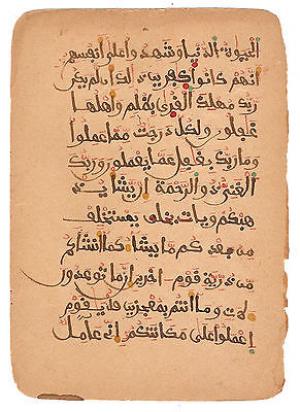 الحيوة الدنيا وشهدوا على أنفسهم
أنهم كانوا كفرين ذلك أن لم يكن
ربك مهلك القرى بظلم وأهلها
غفلون ولكل درجت مما عملوا
وما ربك بغفل عما يعملون وربك
الغني ذو الرحمة إن يشأ يذ
هبكم ويات بخلق يستخلف
من بعدكم ما يشاء كما أنشأكم
من ذرية قوم آخرين إن ما توعدون
لات وما أنتم بمعجزين قل يقوم
اعملوا على مكانتكم إني عامل